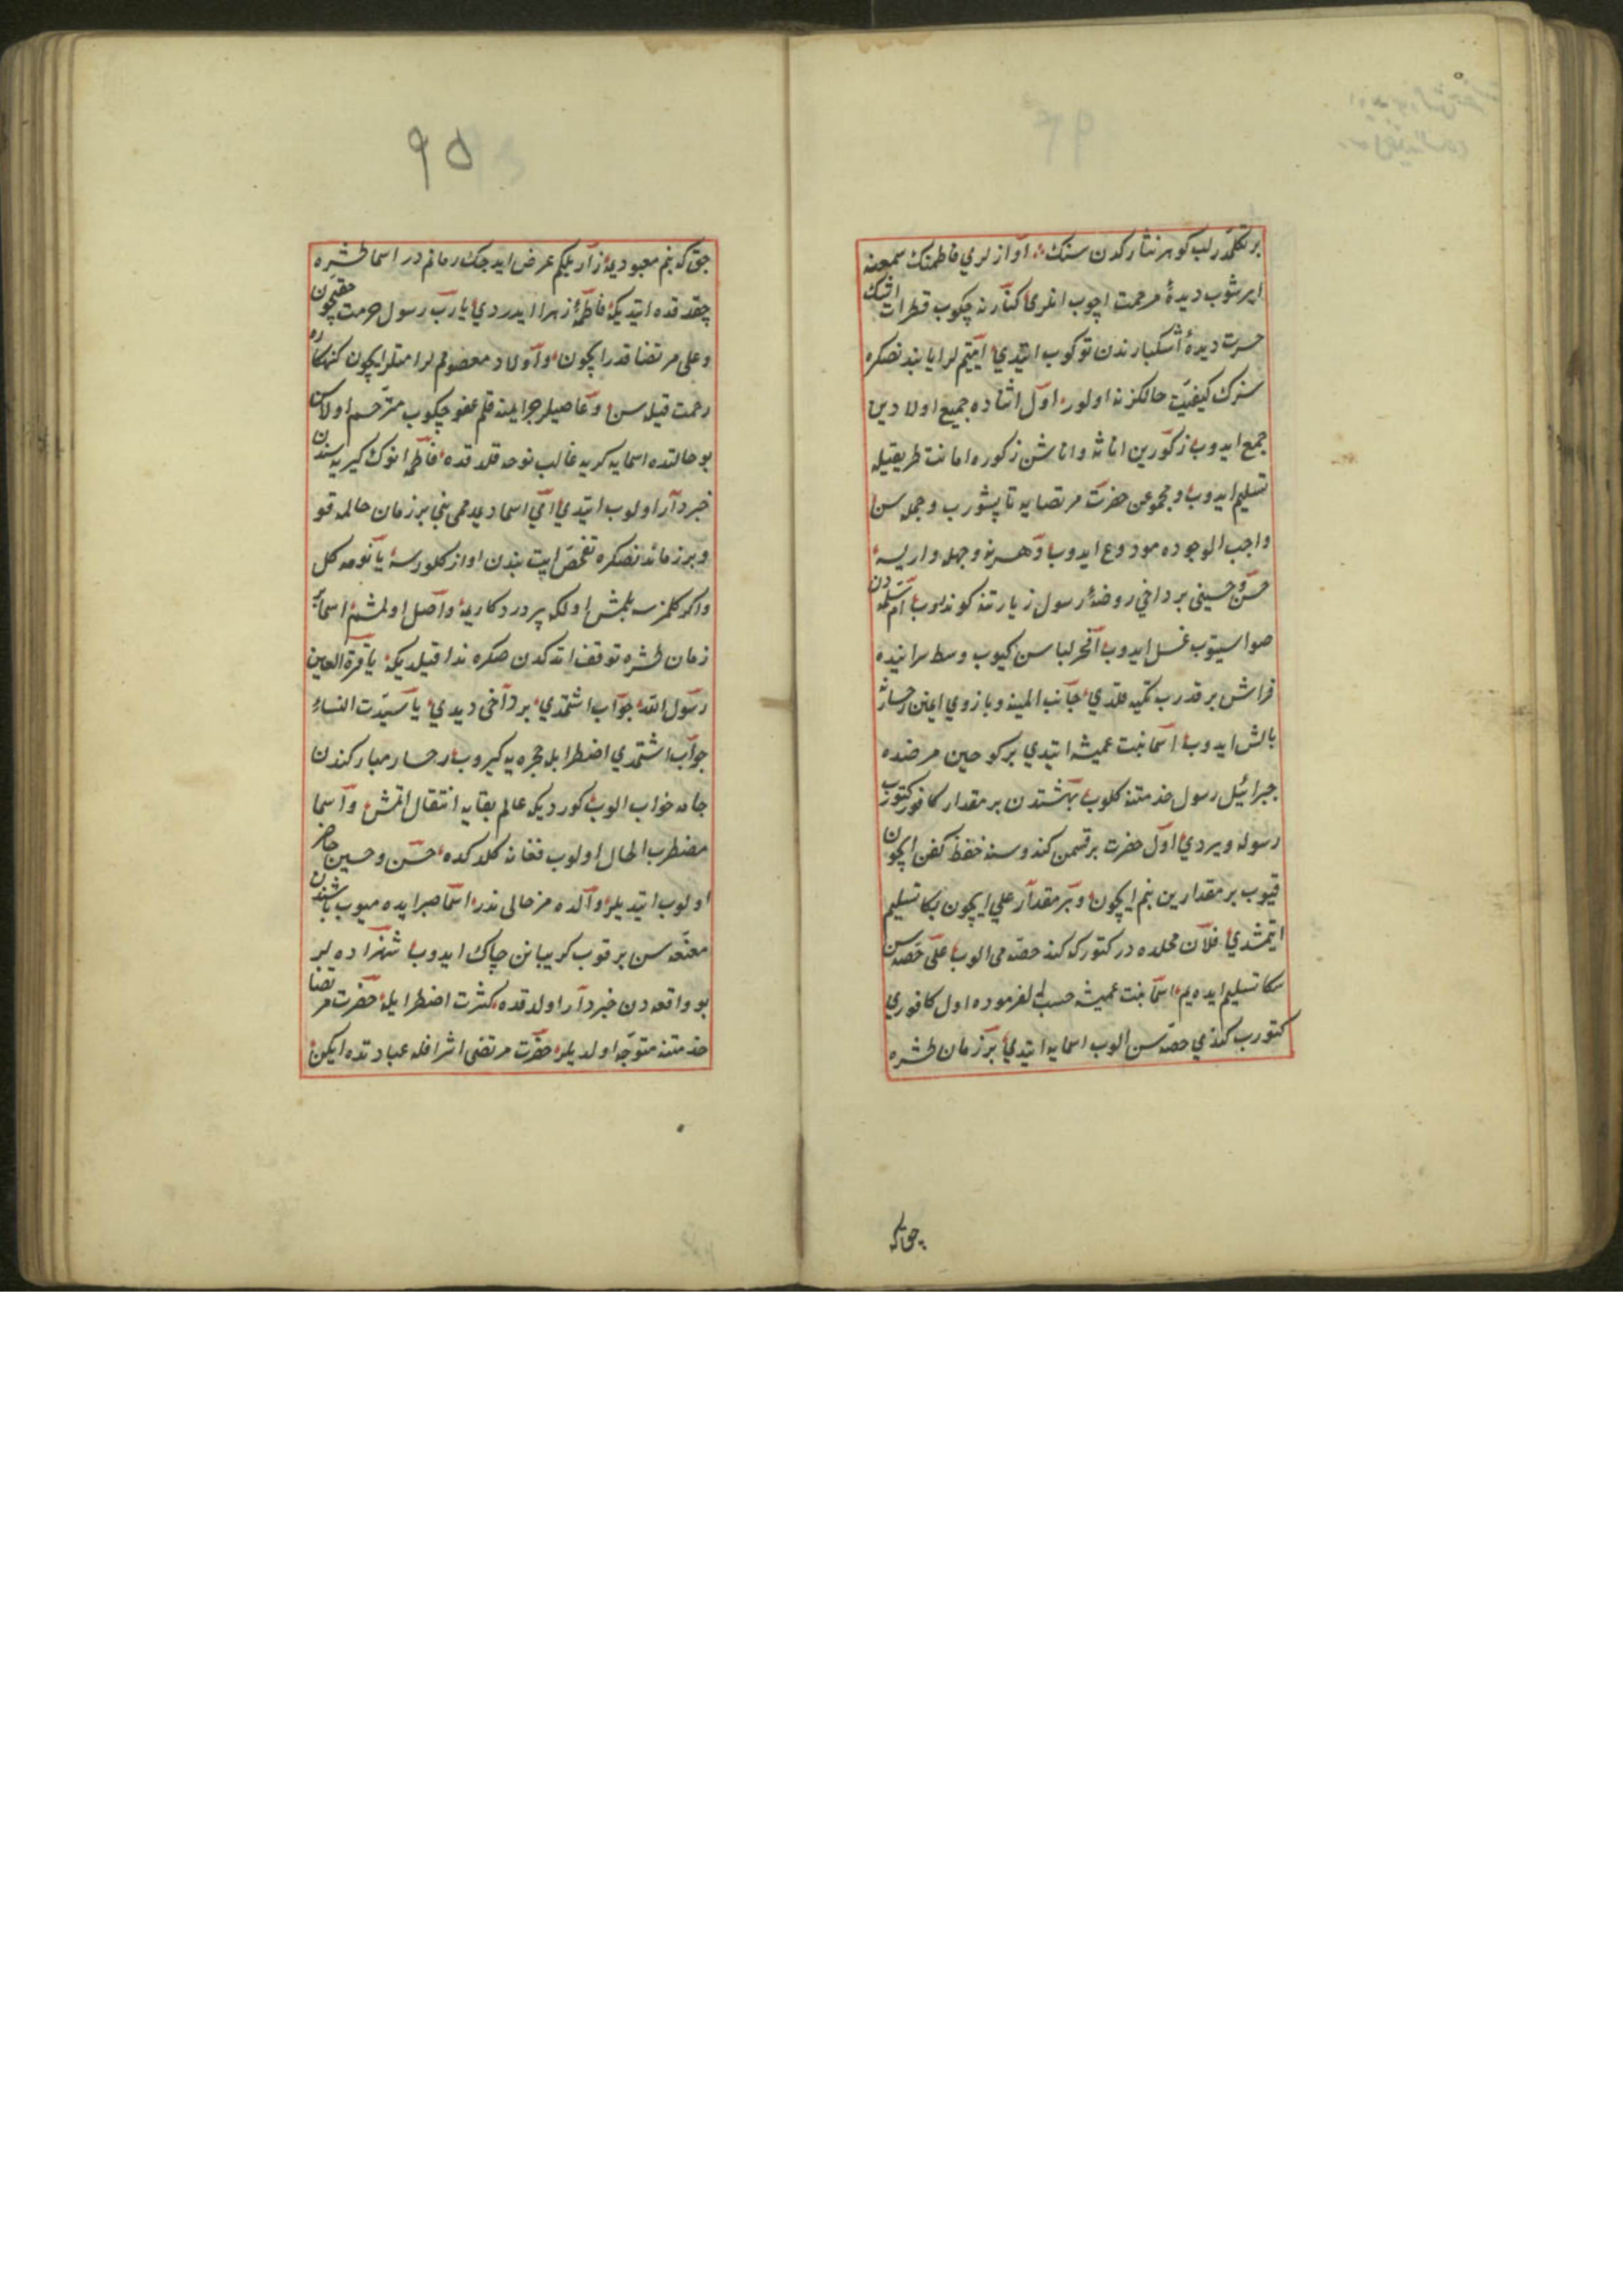 بر تکلّم در لب کوهر نثارکدن سنک آوازلری فاطمنک سمعنه
ایرشوب دیدهٔ مرحمت اچوب انلری کنارنه چکوب قطرات اشک
حسرت دیدهٔ اشکبارندن توکوب ایتدی ایتیملر ایا بندنصکره
سزک کیفیّت حالکز نه اولور اوّل اثناده جمیع اولادین
جمع ایدوب زکورین اناثه واناثن زکوره امانت طریقیله
تسلیم ایدوب و مجموعن حضرت مرتضایه تاپشورب و جمله سن
واجب الوجوده مودوع ایدوب و هر نه وجهله واریسه
حسن و حسینی بر داخی روضهٔ رسول زیارتنه کوندروب ام سلمه دن
صو استیوب غسل ایدوب آخر لباسن کیوب وسط سرانیده
فراش بر قدرب تکیه قلدی جانب الیمینه و بازوی ایمن رخسارنه
بالش ایدوب اسما بنت عمیشه ایتدی برکو حین مرضده
جبرائیل رسول خدمتنه کلوب بهشتدن بر مقدار کافور کتورب
رسوله ویردی اوّل حضرت بر قسمن کندوسنه حفظ کفن ایچون
قیوب بر مقدارین بنم ایچون و بر مقدار علی ایچون بکا تسلیم
ایتمشدی فلان محلده در کتورکه کند حصّه می الوب علی حصّه سن
سکا تسلیم ایده یم اسما بنت عمیشه حسب الفرموده اول کافوری
کتورب کندی حصّه سن الوب اسمایه ایتدی بر زمان طشره
چق که
۹۵
چق که بنم معبودیمه زاریلکم عرض ایدجک زمانم در اسما طشره
چقدقده ایتدیکه فاطمهٔ زهرا ایدردی یا رب رسول حرمت حقیچون
و علی مرتضا قدر ایچون و اولاد معصوملر امتلر ایچون کنهکاره
رحمت قیله سن و عاصیلر جرایمنه قلم عفو چکوب مترحم اولاسن
بو حالتده اسمایه کریه غالب نوحه قلدقده فاطمه انوک کیریه سندن
خبردار اولوب ایتدی ای اسما دیدممی بنی بر زمان حالمه قو
و بر زماندنصکره تفحّص ایت بندن اواز کلورسه یانومه کل
و اکر کلمزسه بلمش اولکه پروردکاریمه واصل اولمشم اسما بر
زمان طشره توقف اتدکدن صکره ندا قیلدیکه یا قرة العین
رسول الله جواب اشتمدی بر داخی دیدی یا سیّدت النساء
جواب اشتمدی اضطرابله حجره یه کیروب رخسار مبارکندن
جامه خواب الوب کوردیکه عالم بقایه انتقال اتمش و اسما
مضطرب الحال اولوب فغانه کلدکده حسن و حسین حاضر
اولوب ایتدیلر والده مز حالی ندر اسما صبر ایده میوب باشندن
مقنعه سن بر قوب کریبانن چاک ایدوب شهزاده لر
بو واقعه دن خبردار اولدقده کثرت اضطرابله حضرت مرتضا
خدمتنه متوجّه اولدیلر حضرت مرتضی اشرافله عبادتده ایکن